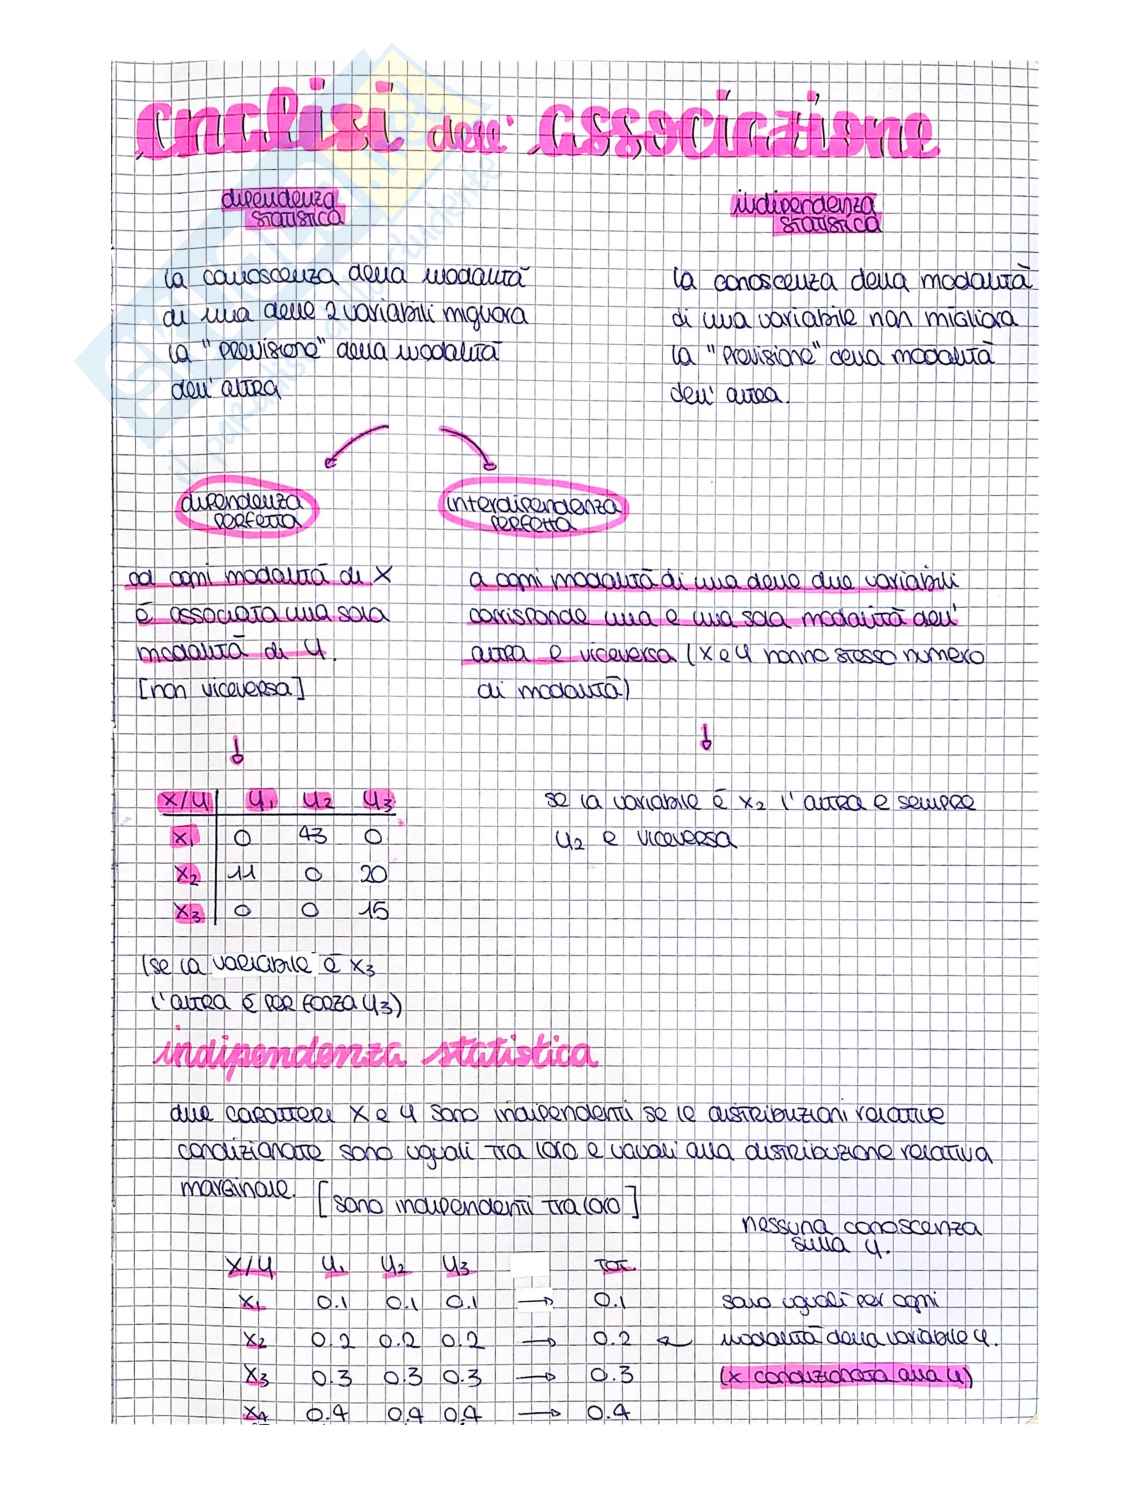 analisi dell' associazione
dipendenza
STATISTICA
la conoscenza della modalità
di una delle 2 variabili migliora
la "previsione" della modalità
dell' altra
indipendenza
STATISTICA
la conoscenza della modalità
di una variabile non migliora
la "previsione" della modalità
dell' altra.
dipendenza
PERFETTA
interdipendenza
PERFETTA
ad ogni modalità di X
è associata una sola
modalità di Y.
[non viceversa]
a ogni modalità di una delle due variabili
corrisponde una e una sola modalità dell'
altra e viceversa (X e Y hanno stesso numero
di modalità)
X/Y Y1 Y2 Y3
X1 0 43 0
X2 11 0 20
X3 0 0 15
(se la variabile è X3
l'altra è per forza Y3)
se la variabile è X2 l'altra è sempre
Y2 e viceversa
indipendenza statistica
due caratteri X e Y sono indipendenti se le distribuzioni relative
condizionate sono uguali tra loro e uguali alla distribuzione relativa
marginale. [sono indipendenti tra loro]
nessuna conoscenza
sulla Y.
X/Y Y1 Y2 Y3 TOT.
X1 0.1 0.1 0.1 → 0.1
X2 0.2 0.2 0.2 → 0.2 ←
X3 0.3 0.3 0.3 → 0.3
X4 0.4 0.4 0.4 → 0.4
sono uguali per ogni
modalità della variabile Y.
(X condizionata alla Y)